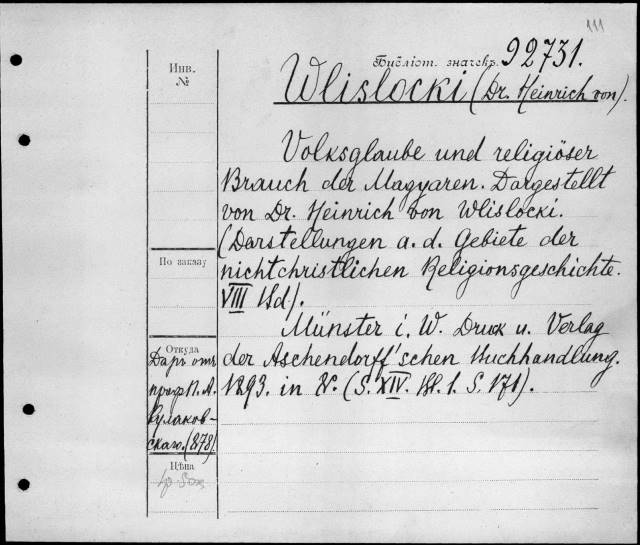 111
Библіот. значекъ. 92731.
Инв.
№
Wlislocki (Dr. Heinrich von).
Volksglaube und religiöser
Brauch der Magyaren. Dargestellt
von Dr. Heinrich von Wlislocki.
(Darstellungen a. d. Gebiete der
nichtchristlichen Religionsgeschichte.
VIII Bd).
Münster i. W. Druck u. Verlag
der Aschendorff'schen Buchhandlung.
1893. in 8°. (S. XIV. Bl. 1. S. 171).
По заказу
Откуда
Даръ отъ
проф. П. А.
Кулаков-
скаго. (878)
Цѣна